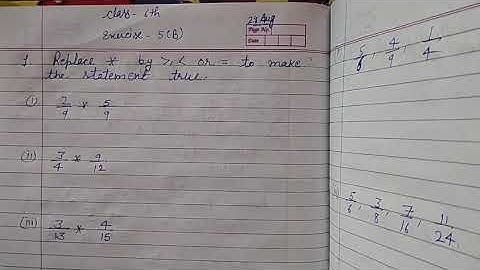 class - 6th
Exercise - 5(B)
29 Aug
Page No.
Date
1. Replace * by >, < or = to make
the statement true.
(i) 7/9 * 5/9
(ii) 3/4 * 9/12
(iii) 3/13 * 4/15
5/8, 4/9, 1/4
5/6, 3/8, 7/16, 11/24